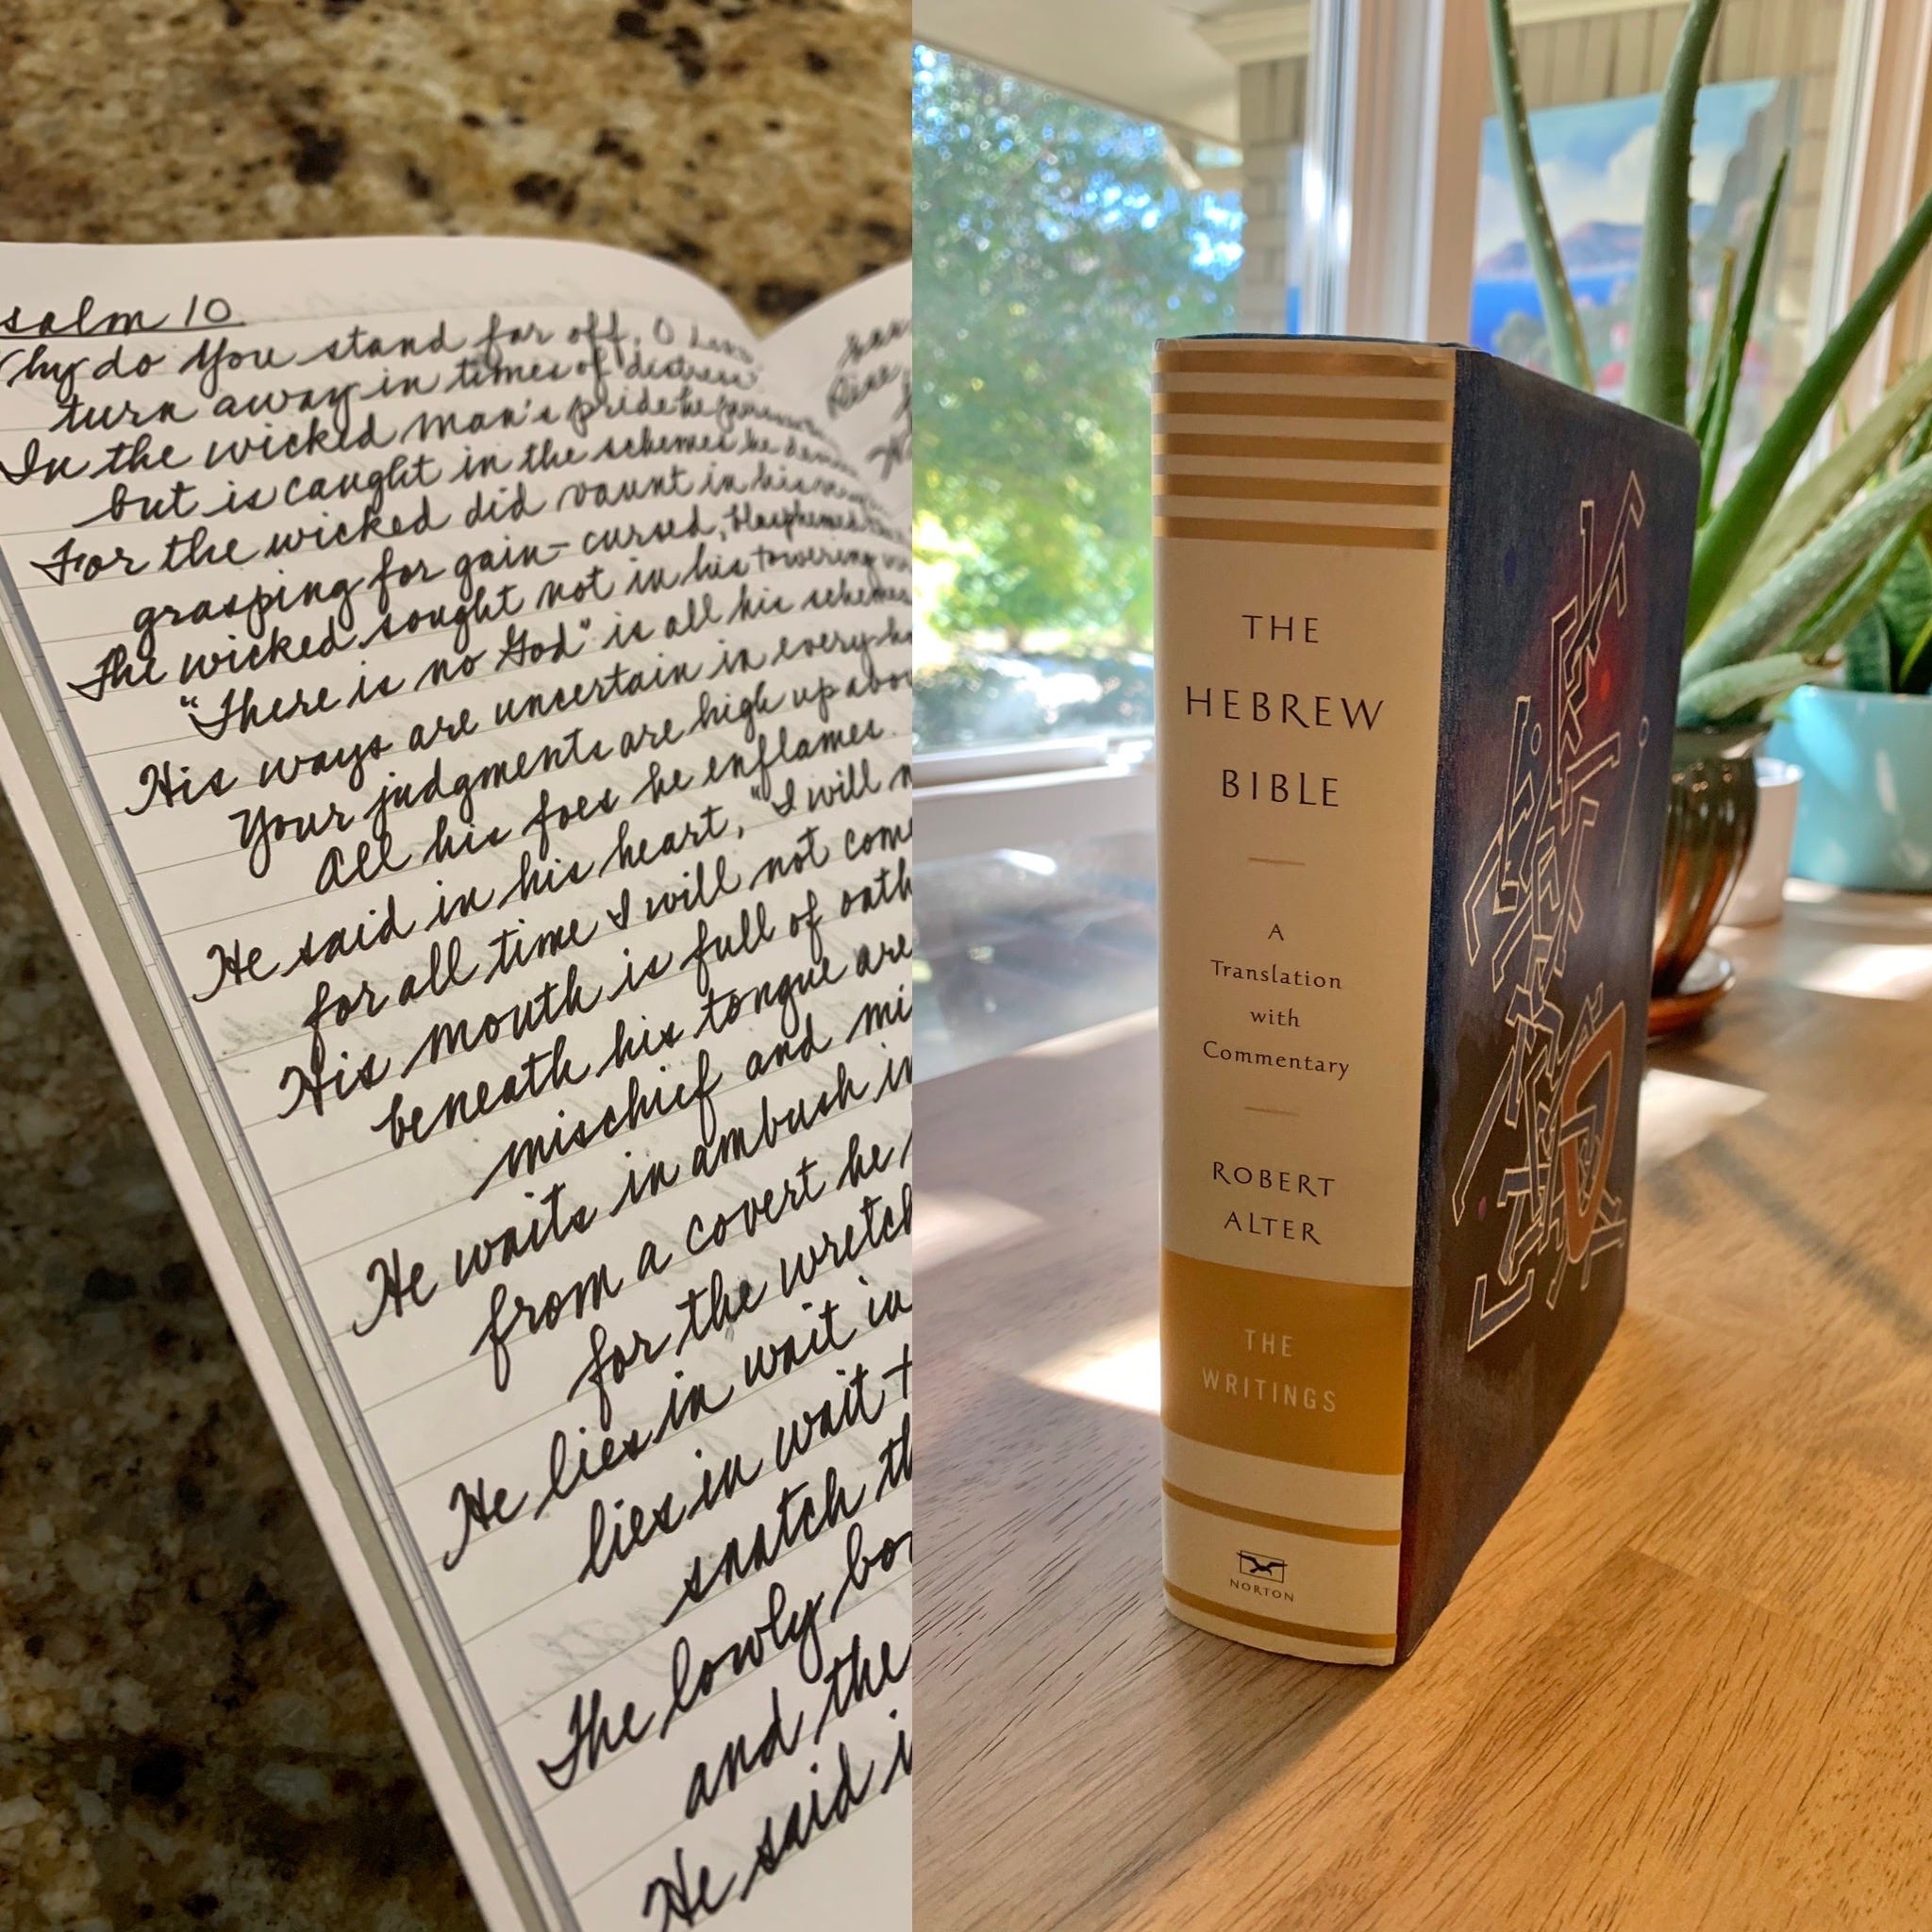 salm 10
hy do You stand far off, O
turn away in times of distress
In the wicked man's pride he
but is caught in the schemes he
For the wicked did vaunt in his
grasping for gain– cursed, blasphemed
The wicked sought not in his towering
"There is no God" is all his schemes
His ways are uncertain in every
Your judgments are high up
All his foes he enflames.
He said in his heart, "I will
for all time I will not
His mouth is full of
beneath his tongue are
mischief and
He waits in ambush
from a covert he
for the
He lies in wait in
lies in wait
snatch
The lowly
and the
He said
THE
HEBREW
BIBLE
A
Translation
with
Commentary
ROBERT
ALTER
THE
WRITINGS
NORTON